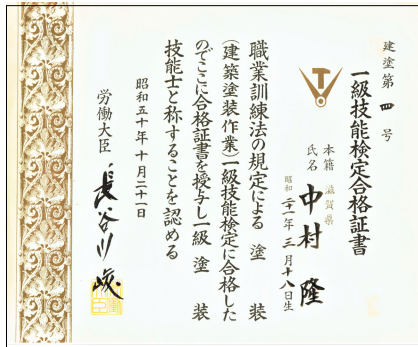 建塗第四号
一級技能検定合格証書
本籍 滋賀県
氏名 中村隆
昭和二十一年三月十八日生
職業訓練法の規定による 塗装
(建築塗装作業)一級技能検定に合格した
のでここに合格証書を授与し一級塗装
技能士と称することを認める
昭和五十年十月二十一日
労働大臣 長谷川峻